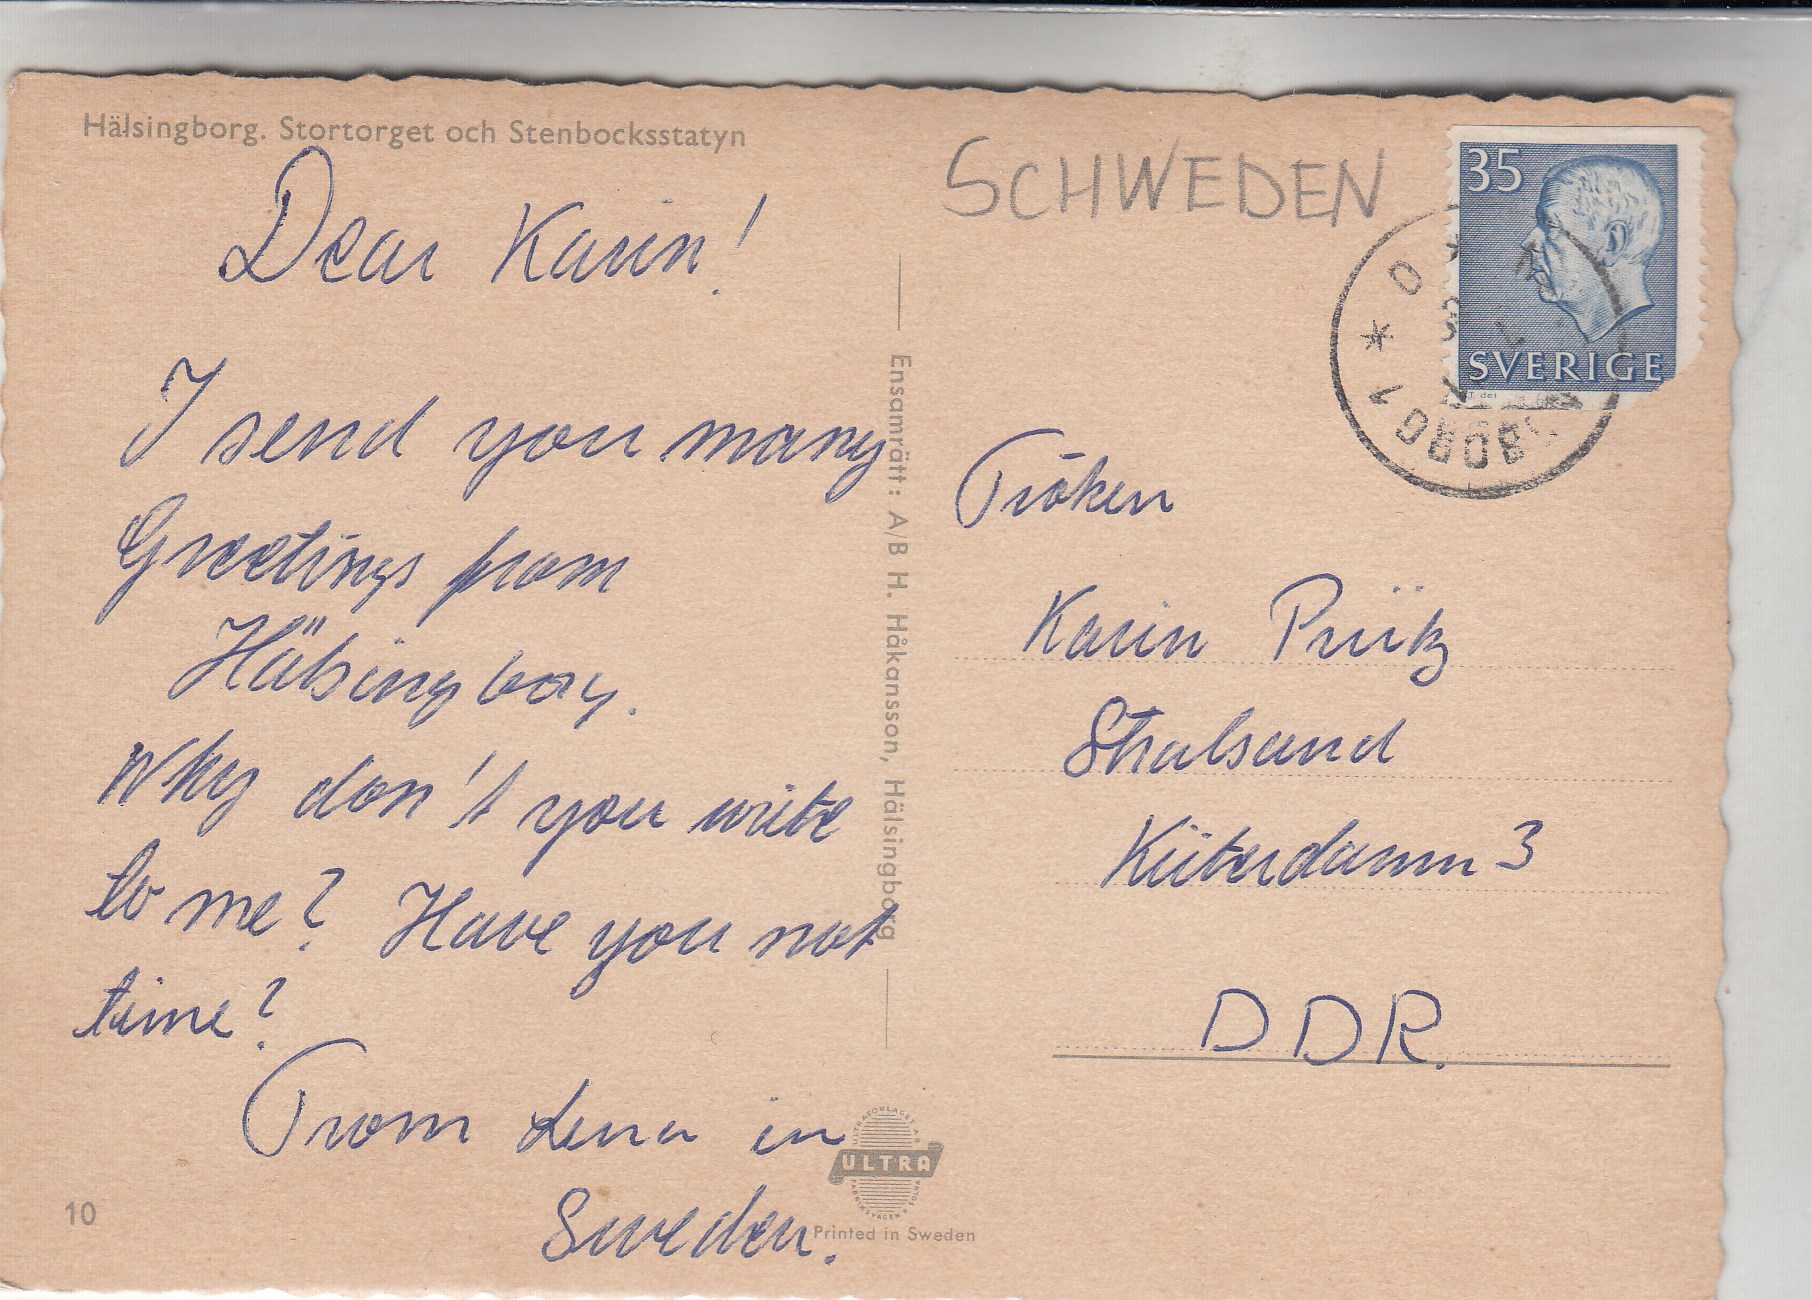 Hälsingborg. Stortorget och Stenbocksstatyn
Dear Karin!
I send you many
Greetings from
Hälsingborg.
Why don't you write
to me? Have you not
time?
From Lena in
Sweden.
10
Ensamrätt: A/B H. Håkansson, Hälsingborg
ULTRA
Printed in Sweden
SCHWEDEN
35
SVERIGE
Fröken
Karin Prütz
Stralsund
Küterdamm 3
DDR.